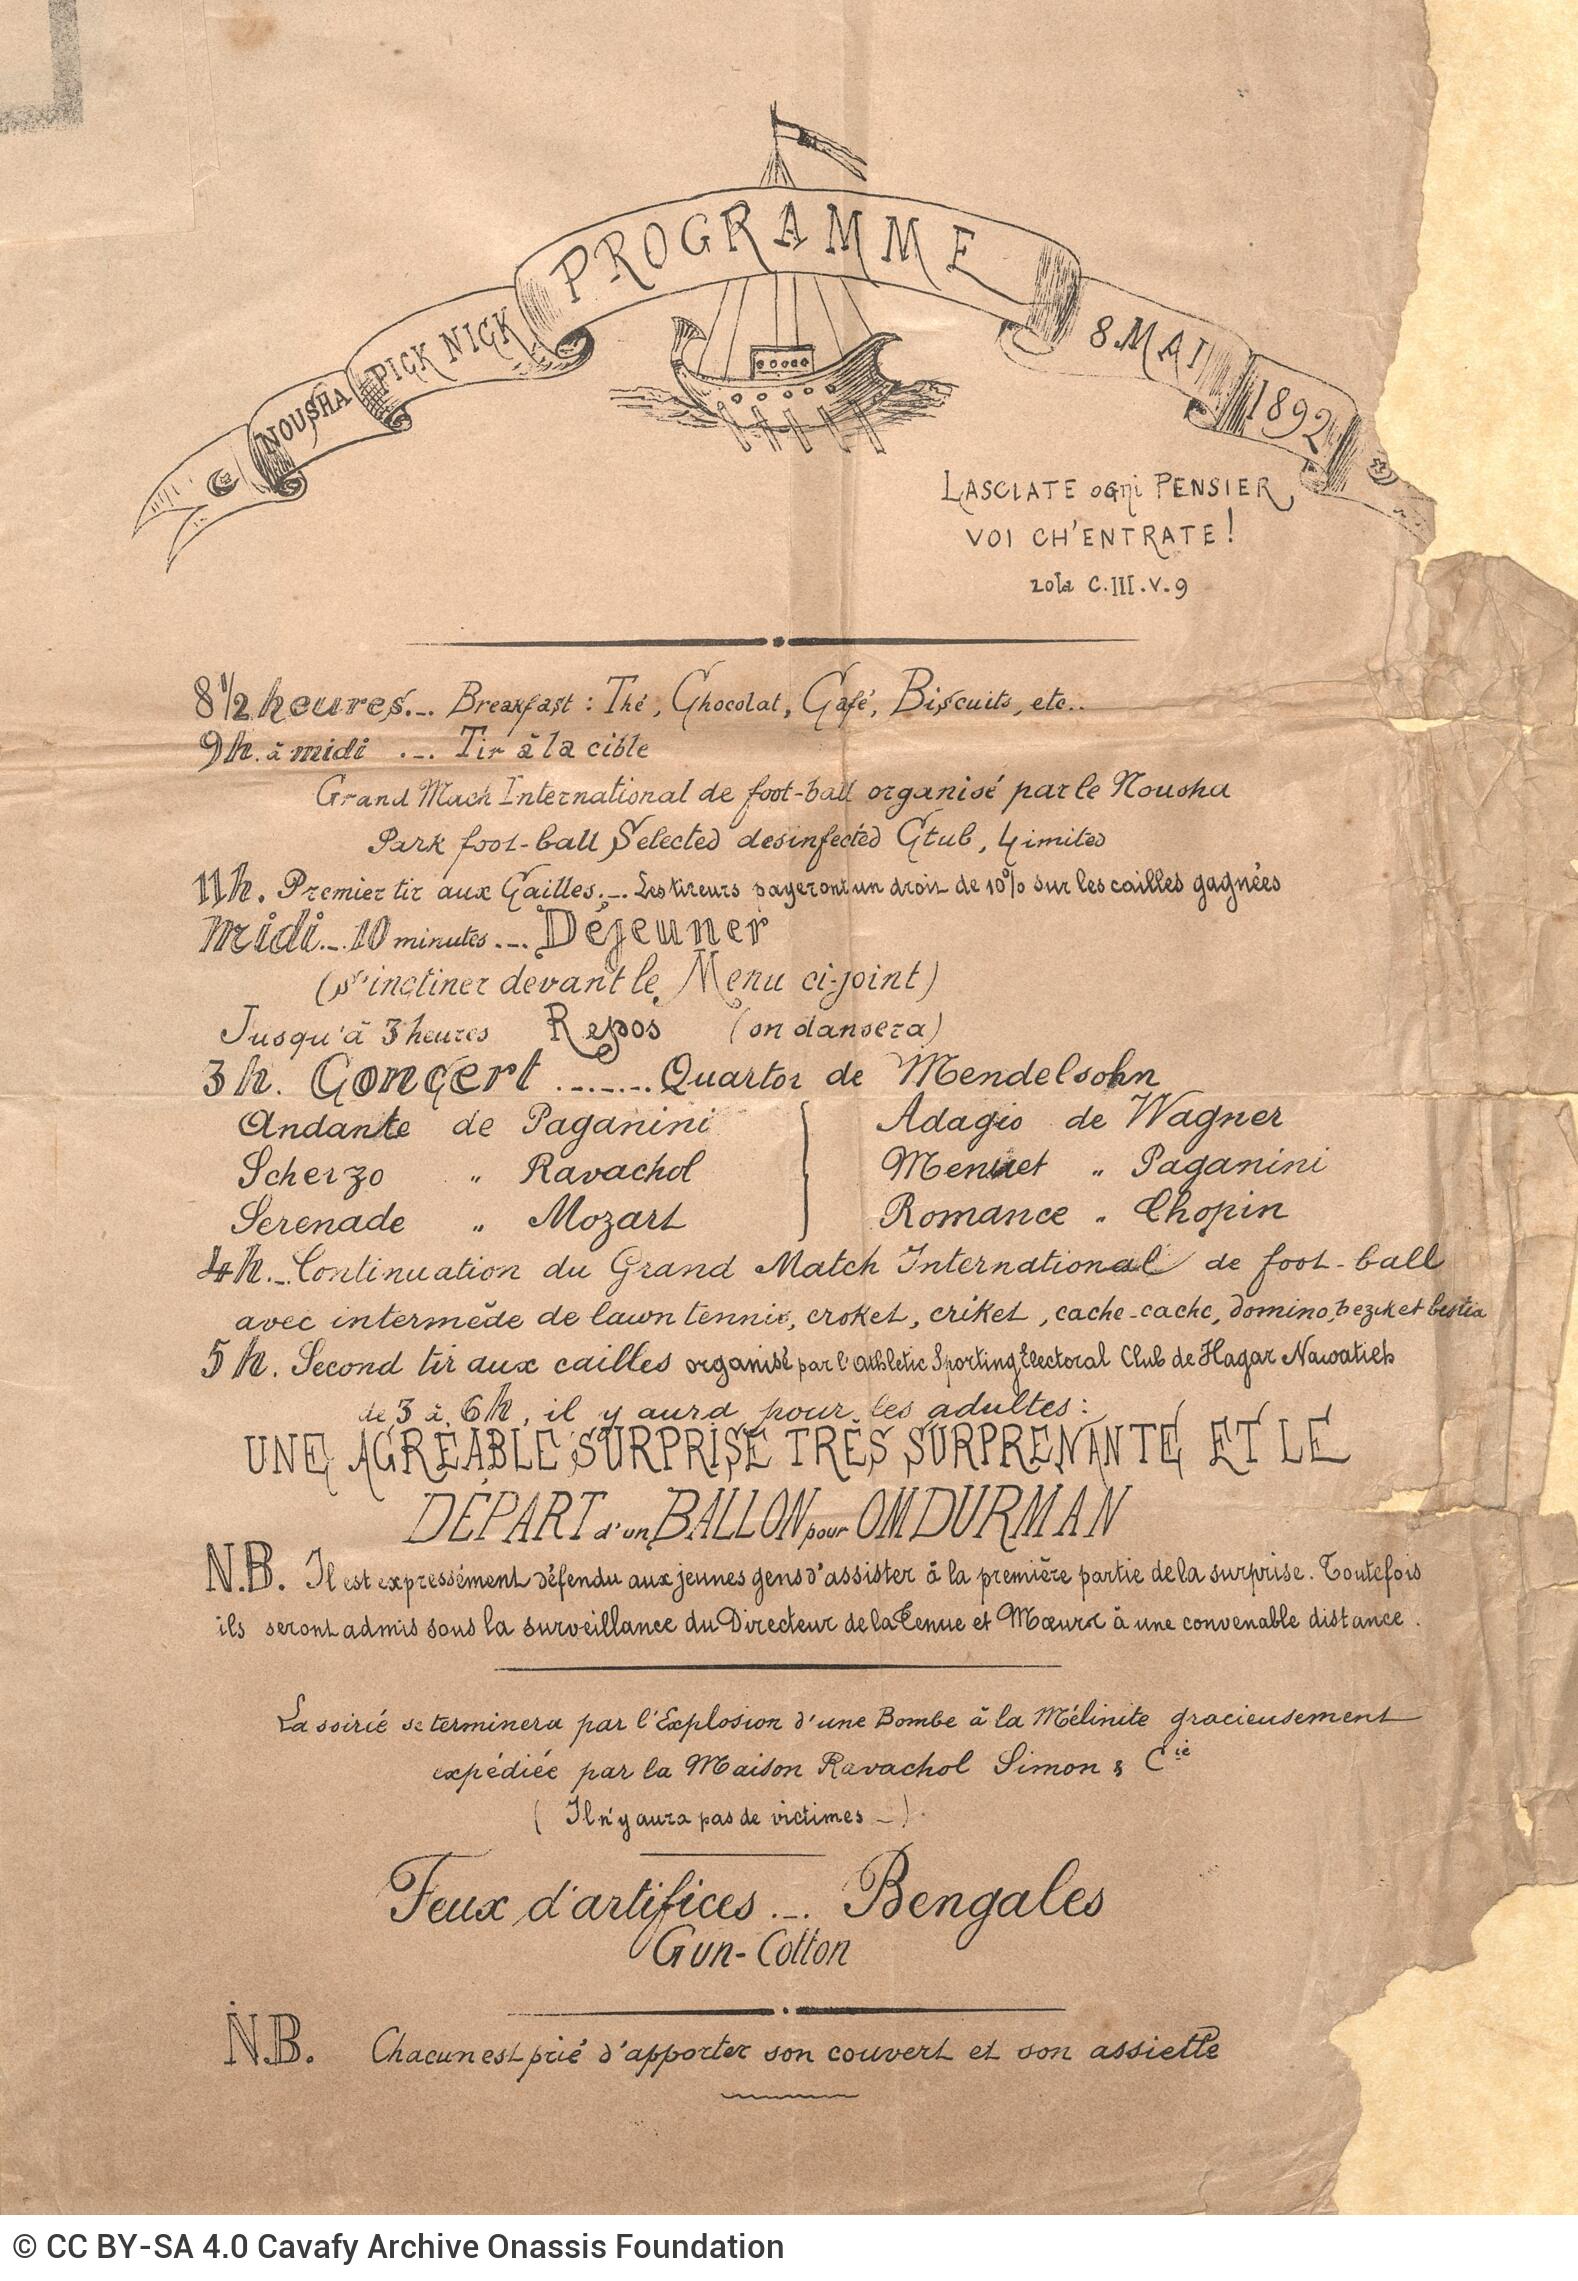 PROGRAMME
NOUSHA PICK NICK
8 MAI 1892
LASCIATE OGNI PENSIER
VOI CH'ENTRATE!
zola C.III.V.9
8 1/2 heures._. Breakfast : Thé, Chocolat, Café, Biscuits, etc..
9h. à midi ._. Tir à la cible
Grand Mach International de foot-ball organisé par le Nousha
Park foot-ball Selected desinfected Club, Limited
11h. Premier tir aux Cailles._. Les tireurs payeront un droit de 10% sur les cailles gagnées
Midi._.10 minutes._. Déjeuner
(S'incliner devant le Menu ci-joint)
Jusqu'à 3 heures Repos (on dansera)
3h. Concert ._._._. Quartor de Mendelsohn
Andante de Paganini
Scherzo " Ravachol
Serenade " Mozart
Adagio de Wagner
Menuet " Paganini
Romance " Chopin
4h._. Continuation du Grand Match International de foot-ball
avec intermède de lawn tennis, croket, criket, cache-cache, domino, bezik et bestia
5h. Second tir aux cailles organisé par l'Athletic Sporting Electoral Club de Hagar Nawatieh
de 3 à 6h, il y aura pour les adultes:
UNE AGRÉABLE SURPRISE TRÈS SURPRENANTE ET LE
DÉPART d'un BALLON pour OMDURMAN
N.B. Il est expressément défendu aux jeunes gens d'assister à la première partie de la surprise. Toutefois
ils seront admis sous la surveillance du Directeur de la Tenue et Mœurs à une convenable distance.
La soirié se terminera par l'Explosion d'une Bombe à la Mélinite gracieusement
expédiée par la Maison Ravachol Simon & Cie
(Il n'y aura pas de victimes _)
Feux d'artifices._. Bengales
Gun-Cotton
N.B. Chacun est prié d'apporter son couvert et son assiette
© CC BY-SA 4.0 Cavafy Archive Onassis Foundation